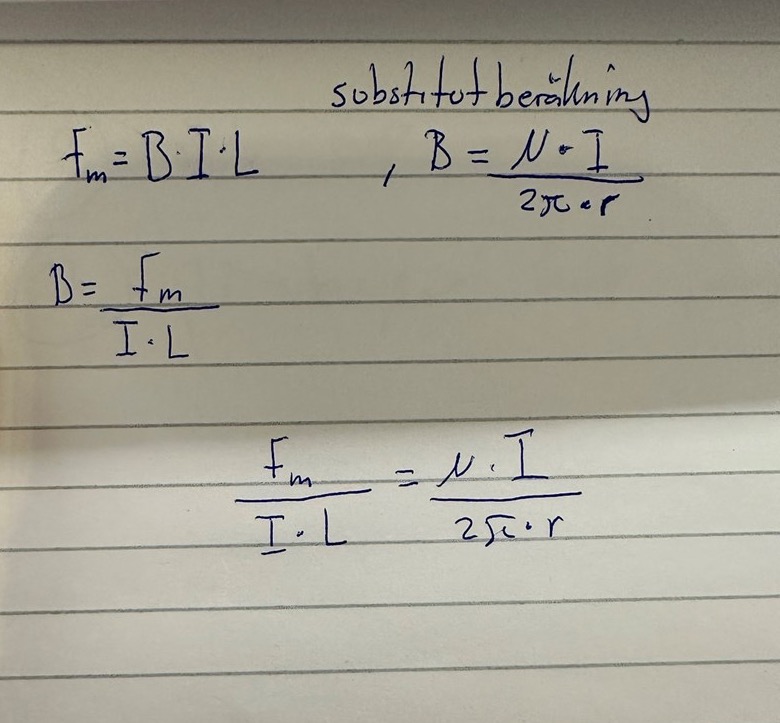 substitutberäkning
Fm = B·I·L , B = μ·I / 2π·r
B = Fm / I·L
Fm / I·L = μ·I / 2π·r